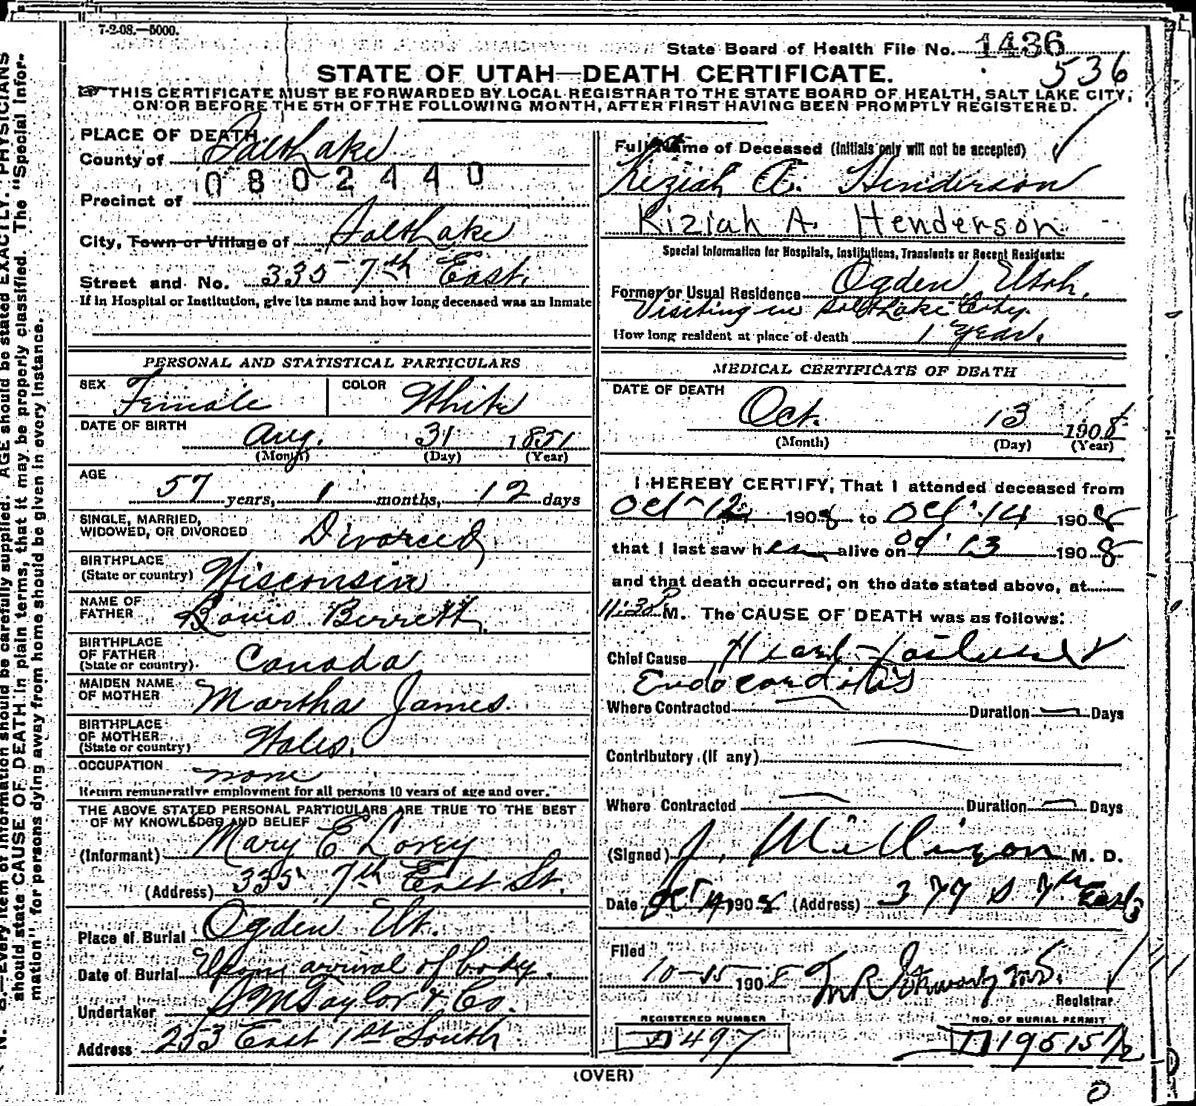 7-2-08.—5000.
State Board of Health File No. 1436
536
STATE OF UTAH—DEATH CERTIFICATE.
THIS CERTIFICATE MUST BE FORWARDED BY LOCAL REGISTRAR TO THE STATE BOARD OF HEALTH, SALT LAKE CITY,
ON OR BEFORE THE 5TH OF THE FOLLOWING MONTH, AFTER FIRST HAVING BEEN PROMPTLY REGISTERED.
PLACE OF DEATH
County of Salt Lake
0802440
Precinct of
City, Town or Village of Salt Lake
Street and No. 335 7th East.
If in Hospital or Institution, give its name and how long deceased was an Inmate
PERSONAL AND STATISTICAL PARTICULARS
SEX Female COLOR White
DATE OF BIRTH Aug. 31 1851
(Month) (Day) (Year)
AGE
57 years, 1 months, 12 days
SINGLE, MARRIED,
WIDOWED, OR DIVORCED Divorced
BIRTHPLACE
(State or country) Wisconsin
NAME OF
FATHER Louis Berrett
BIRTHPLACE
OF FATHER
(State or country) Canada
MAIDEN NAME
OF MOTHER Martha James.
BIRTHPLACE
OF MOTHER
(State or country) Wales.
OCCUPATION none
Return remunerative employment for all persons 10 years of age and over.
THE ABOVE STATED PERSONAL PARTICULARS ARE TRUE TO THE BEST
OF MY KNOWLEDGE AND BELIEF
(Informant) Mary E Lovey
(Address) 335 7th East St.
Place of Burial Ogden Ut.
Date of Burial Upon arrival of body.
Undertaker S M Taylor & Co.
Address 253 East 1st South
Full Name of Deceased (Initials only will not be accepted)
Kiziah A. Henderson
Kiziah A. Henderson
Special Information for Hospitals, Institutions, Transients or Recent Residents:
Former or Usual Residence Ogden Utah.
Visiting in Salt Lake City.
How long resident at place of death 1 Year.
MEDICAL CERTIFICATE OF DEATH
DATE OF DEATH
Oct. 13 1908
(Month) (Day) (Year)
I HEREBY CERTIFY, That I attended deceased from
Oct-12 1908 to Oct 14 1908
that I last saw her alive on Oct 13 1908
and that death occurred, on the date stated above, at
11:30 P M. The CAUSE OF DEATH was as follows:
Chief Cause Heart-failure
Endocarditis
Where Contracted Duration Days
Contributory (If any)
Where Contracted Duration Days
(Signed) J. Millinzon M. D.
Date Oct 14 1908 (Address) 377 S 7th East
Filed
10-15-1908
Registrar
REGISTERED NUMBER NO. OF BURIAL PERMIT
D 497 D 19515 1/2
(OVER)
0
N. B.—Every item of information should be carefully supplied. AGE should be stated EXACTLY. PHYSICIANS
should state CAUSE OF DEATH in plain terms, that it may be properly classified. The "Special Infor-
mation" for persons dying away from home should be given in every instance.